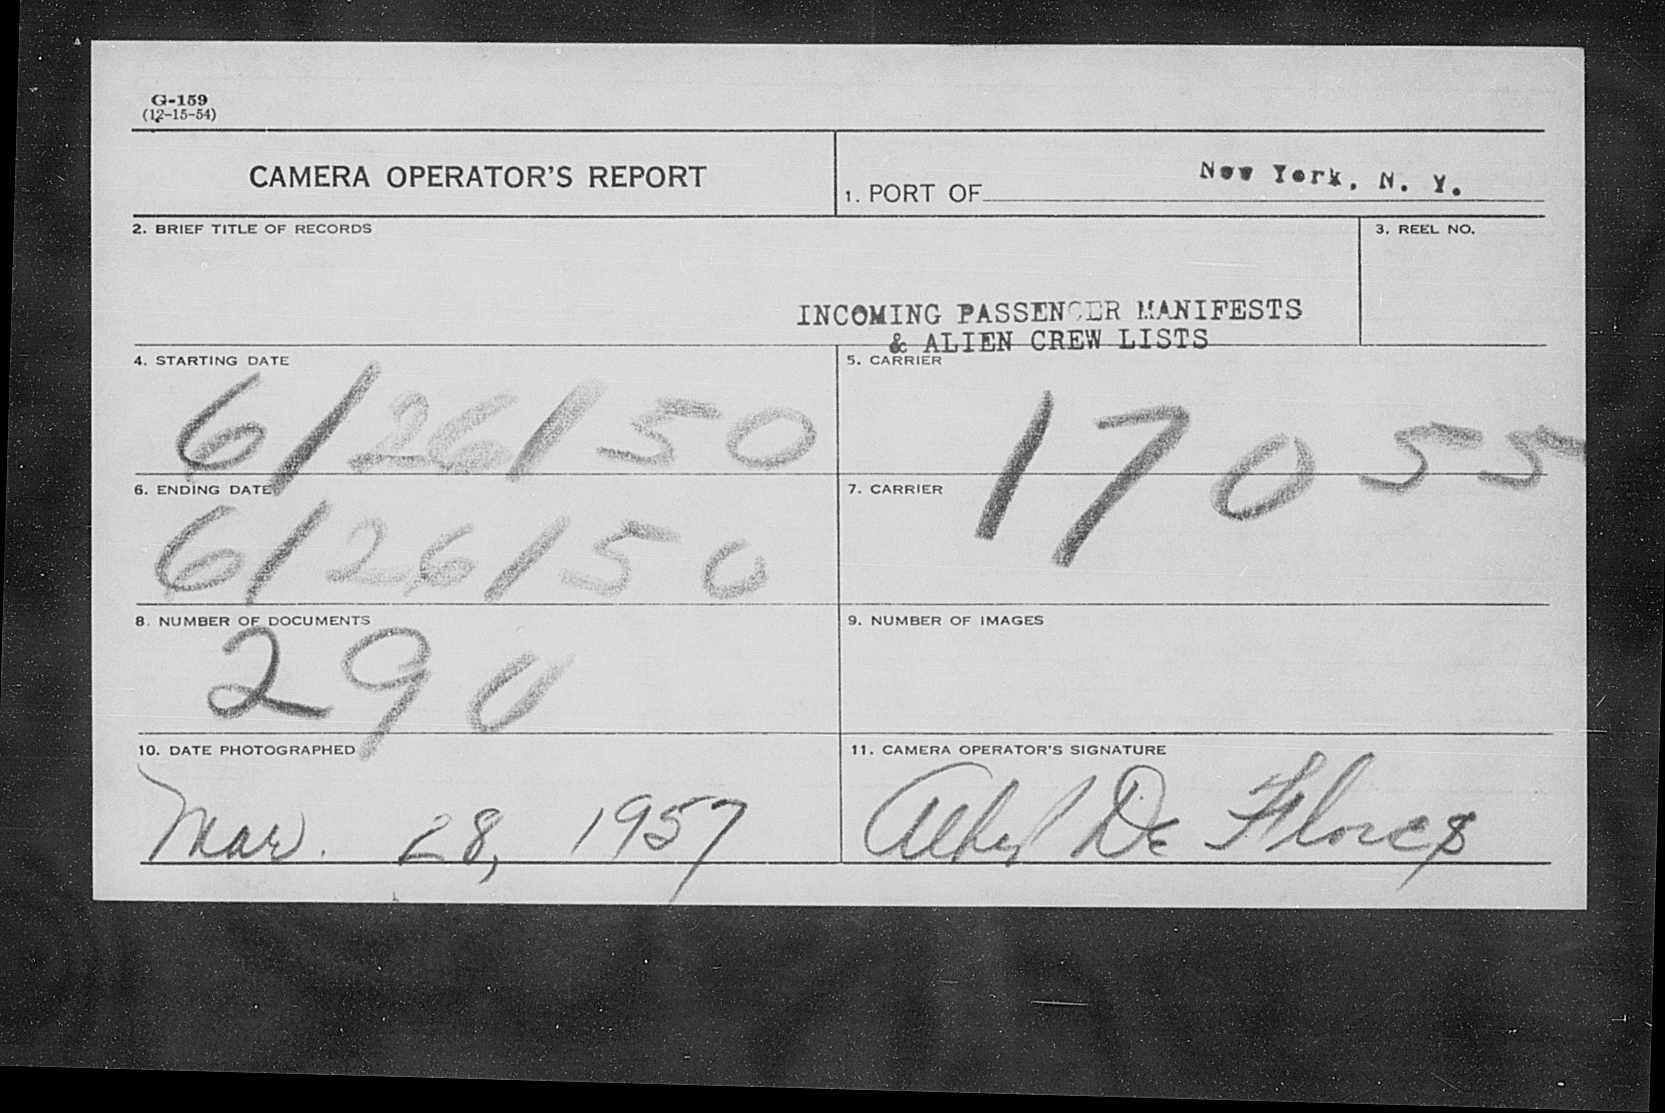 G-159
(12-15-54)
CAMERA OPERATOR'S REPORT
1. PORT OF New York, N. Y.
2. BRIEF TITLE OF RECORDS
3. REEL NO.
INCOMING PASSENGER MANIFESTS
& ALIEN CREW LISTS
4. STARTING DATE
6/26/50
5. CARRIER
17055
6. ENDING DATE
6/26/50
7. CARRIER
8. NUMBER OF DOCUMENTS
290
9. NUMBER OF IMAGES
10. DATE PHOTOGRAPHED
Mar. 28, 1957
11. CAMERA OPERATOR'S SIGNATURE
De Flores